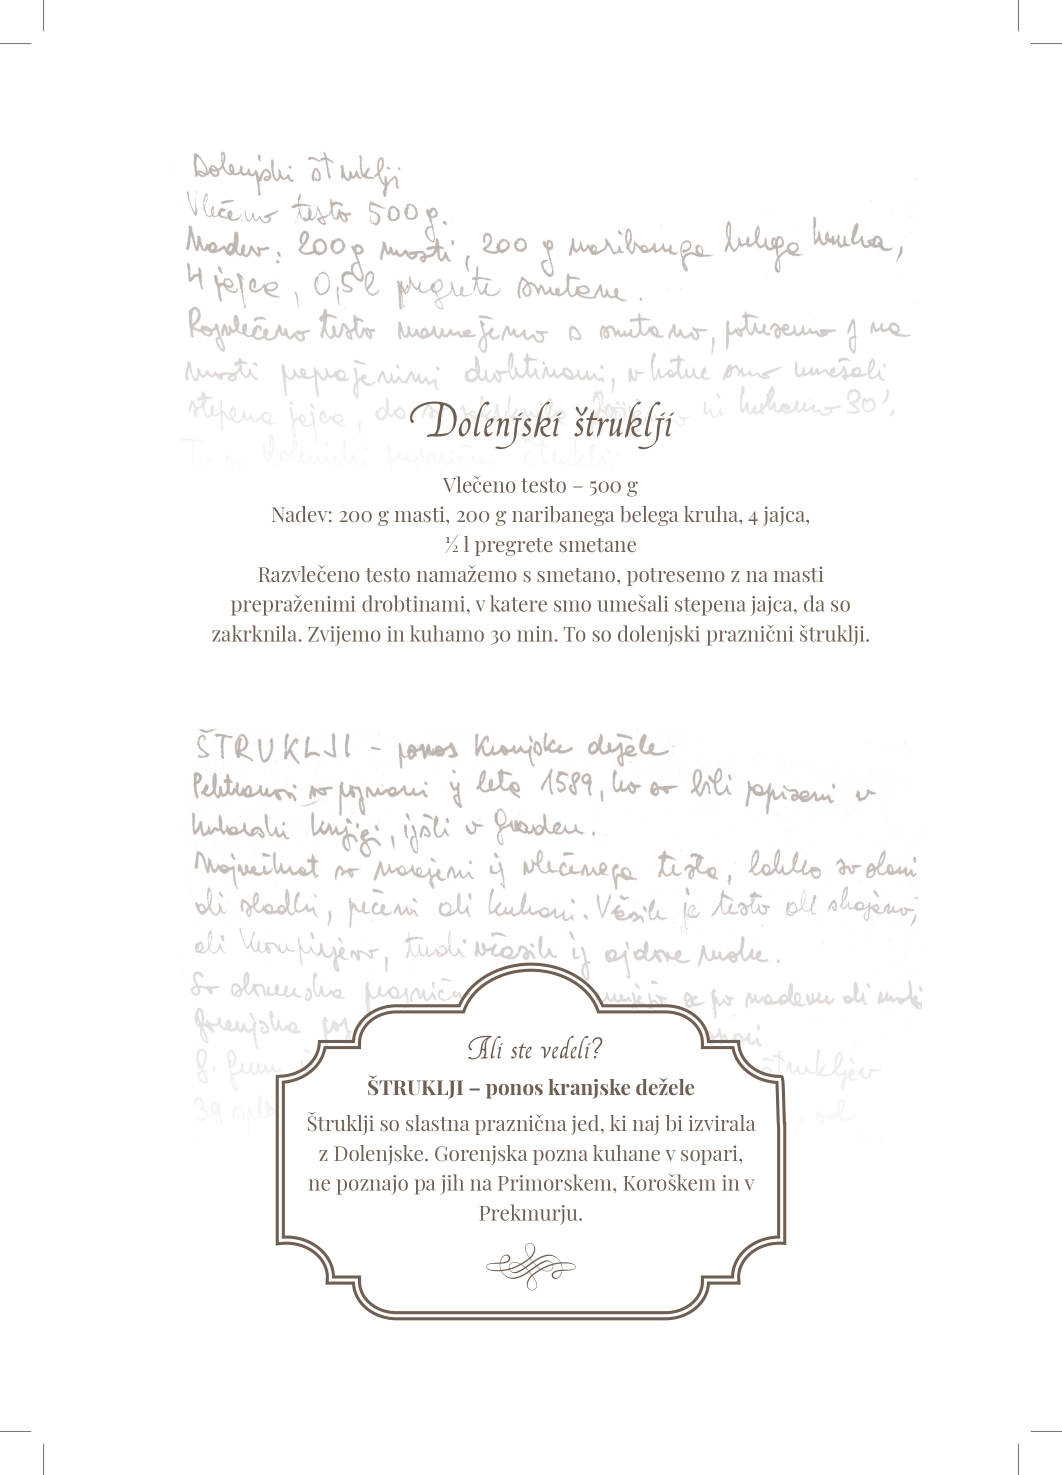 Dolenjski štruklji
Vlečeno testo 500 g.
Nadev: 200 g masti, 200 g naribanega belega kruha,
4 jajca, 0,5 l pregrete smetane.
Razvlečeno testo namažemo s smetano, potresemo z na
masti prepraženimi drobtinami, v katere smo umešali
stepena jajca, da so in kuhamo 30'.
To so dolenjski praznični štruklji
Dolenjski štruklji
Vlečeno testo – 500 g
Nadev: 200 g masti, 200 g naribanega belega kruha, 4 jajca,
½ l pregrete smetane
Razvlečeno testo namažemo s smetano, potresemo z na masti
prepraženimi drobtinami, v katere smo umešali stepena jajca, da so
zakrknila. Zvijemo in kuhamo 30 min. To so dolenjski praznični štruklji.
ŠTRUKLJI – ponos Kranjske dežele
Pehtranovi so poznani iz leta 1589, ko so bili zapisani v
kuharski knjigi, izšli v Gradcu.
Največkrat so narejeni iz vlečenega testa, lahko so slani
ali sladki, pečeni ali kuhani. Včasih je testo ali shajano,
ali krompirjevo, tudi včasih iz ajdove moke.
So slovenska se po nadevu ali
Gorenjska
štrukljev
39
Ali ste vedeli?
ŠTRUKLJI – ponos kranjske dežele
Štruklji so slastna praznična jed, ki naj bi izvirala
z Dolenjske. Gorenjska pozna kuhane v sopari,
ne poznajo pa jih na Primorskem, Koroškem in v
Prekmurju.